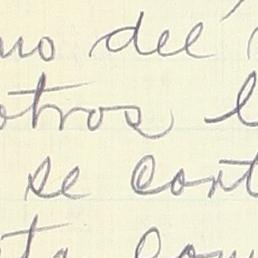 mo del
otros l
se cont
ta com